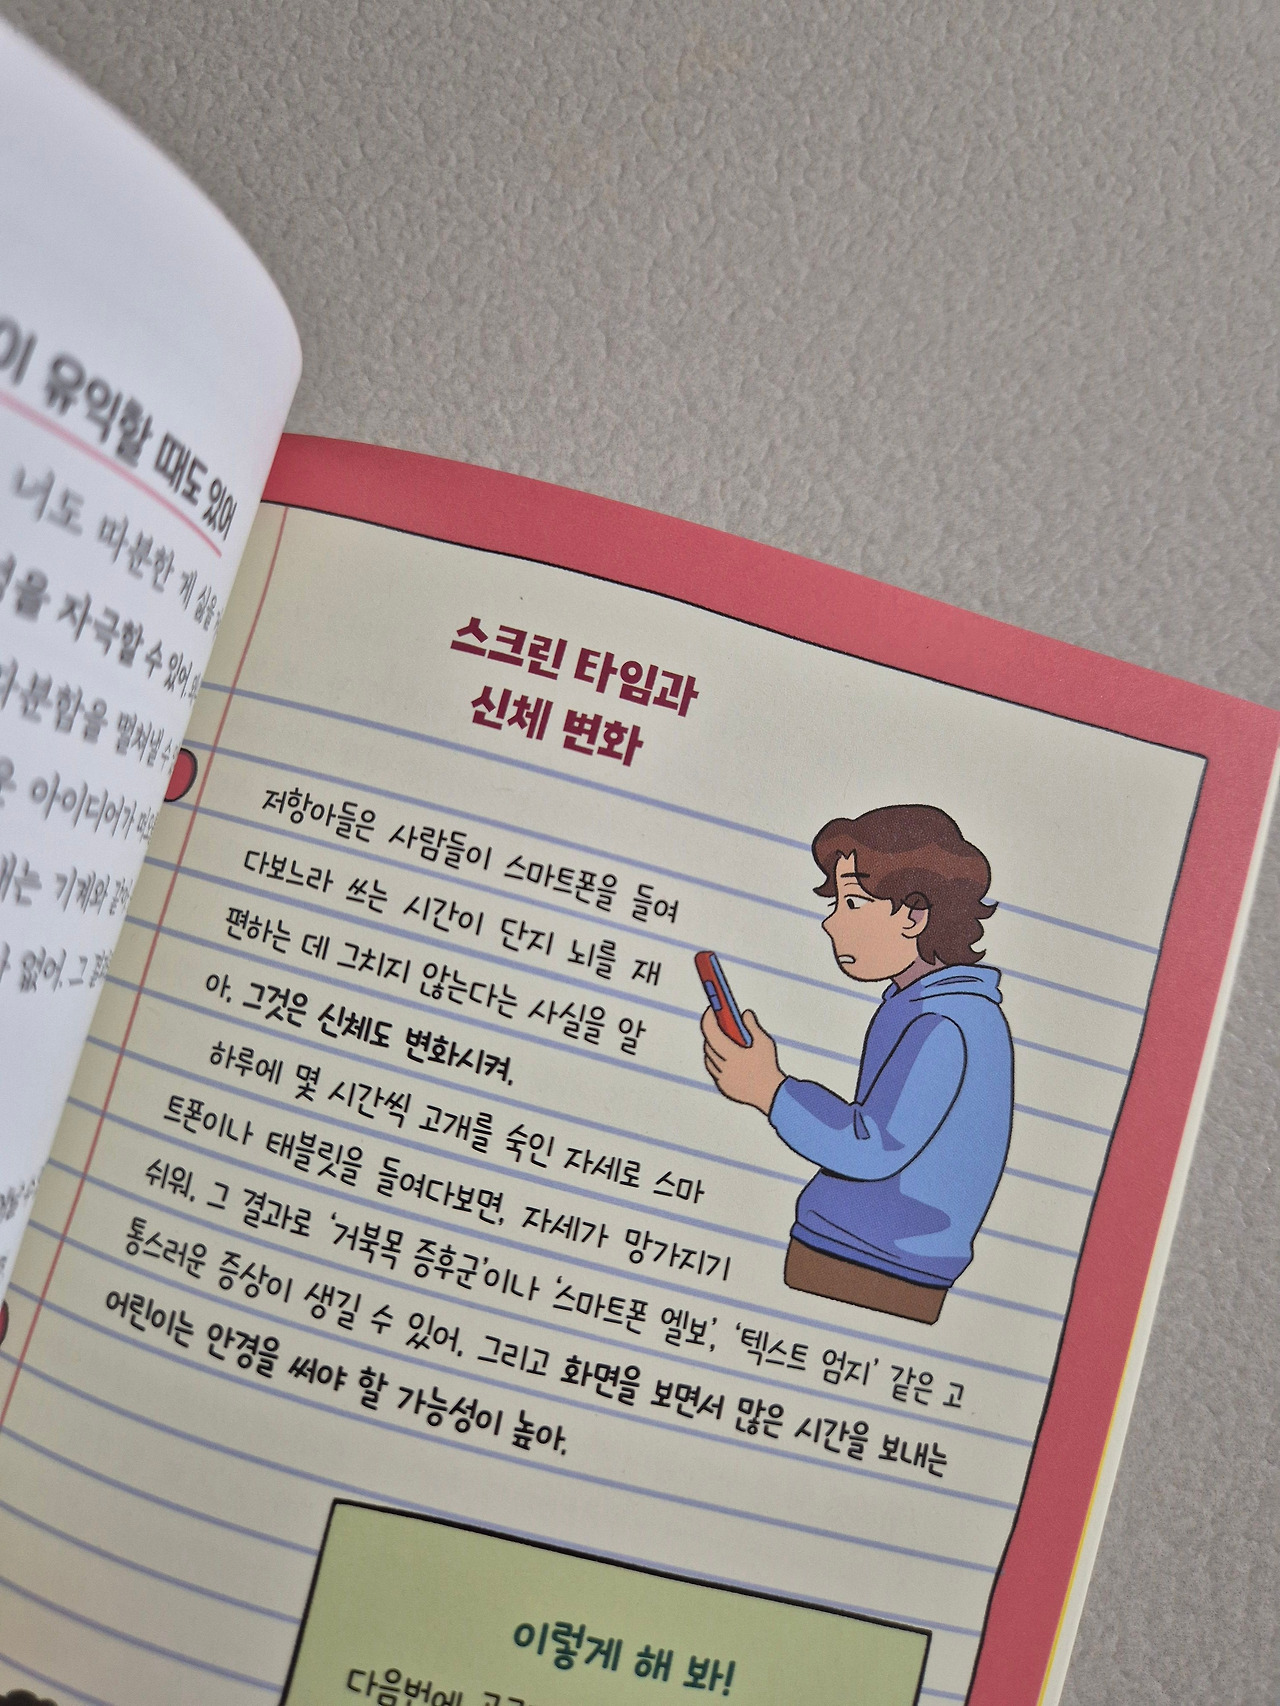 이 유익할 때도 있어
너도 따분한 게 싫을
을 자극할 수 있어.
따분함을 떨쳐낼 수
아이디어가
기계와
없어. 그
스크린 타임과
신체 변화
저항아들은 사람들이 스마트폰을 들여
다보느라 쓰는 시간이 단지 뇌를 재
편하는 데 그치지 않는다는 사실을 알
아. 그것은 신체도 변화시켜.
하루에 몇 시간씩 고개를 숙인 자세로 스마
트폰이나 태블릿을 들여다보면, 자세가 망가지기
쉬워. 그 결과로 ‘거북목 증후군’이나 ‘스마트폰 엘보’, ‘텍스트 엄지’ 같은 고
통스러운 증상이 생길 수 있어. 그리고 화면을 보면서 많은 시간을 보내는
어린이는 안경을 써야 할 가능성이 높아.
이렇게 해 봐!
다음번에